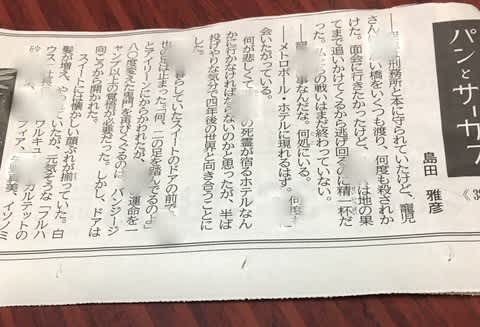 パンとサーカ
島田 雅彦
刑務所と本に守られていたけど、寵児
さん い橋をいくつも渡り、何度も殺されか
けた。面会に行きたかったけど、 は地の果
てまで追いかけてくるから逃げ回るのに精一杯だ
った。 の戦いはまだ終わっていない。
― 事なんだな。何処にいる。
―メトロポール・ホテルに現れるはず。何度も
会いたがっている。
何が悲しくて の死霊が宿るホテルなん
かに行かなければならないのかと思ったが、半ば
投げやりな気分で四年後の世界と向き合うことに
した。
らしていたスイートのドアの前で、
也の足は止まった。「何、二の足を踏んでるのよ」
とアイリーンにからかわれたが、 運命を一
八〇度変えた鬼門を再びくぐるのに バンジージ
ャンプ以上の覚悟が必要だった。しかし、ドアは
向こうから開かれた。
スイートには懐かしい顔ぶれが揃っていた。白
髪が増え、 いたが、元気そうな「フルハ
ウス ワルキュ
砂 フィア、 カルテットの
美、イソノミ